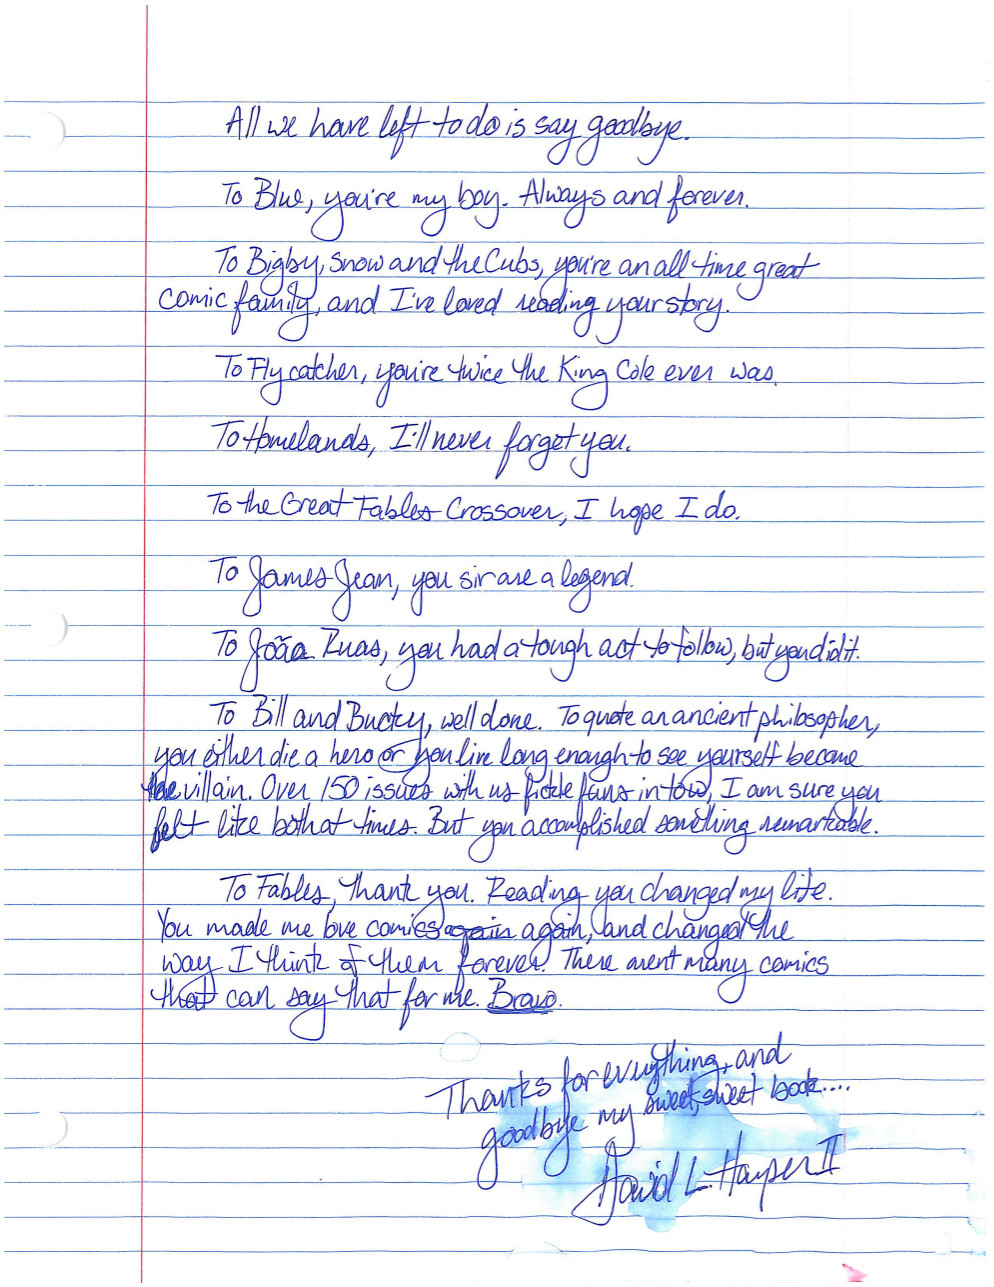 All we have left to do is say goodbye.
To Blue, you're my boy. Always and forever.
To Bigby, Snow and the Cubs, you're an all-time great
comic family, and I've loved reading your story.
To Flycatcher, you're twice the King Cole ever was.
To Homelands, I'll never forget you.
To the Great Fables Crossover, I hope I do.
To James Jean, you sir are a legend.
To João Ruas, you had a tough act to follow, but you did it.
To Bill and Bucky, well done. To quote an ancient philosopher,
you either die a hero or you live long enough to see yourself become
the villain. Over 150 issues with us fickle fans in tow, I am sure you
felt like both at times. But you accomplished something remarkable.
To Fables, thank you. Reading you changed my life.
You made me love comics again again, and changed the
way I think of them forever. There aren't many comics
that can say that for me. Bravo.
Thanks for everything, and
goodbye my sweet, sweet book....
David L. Harper II